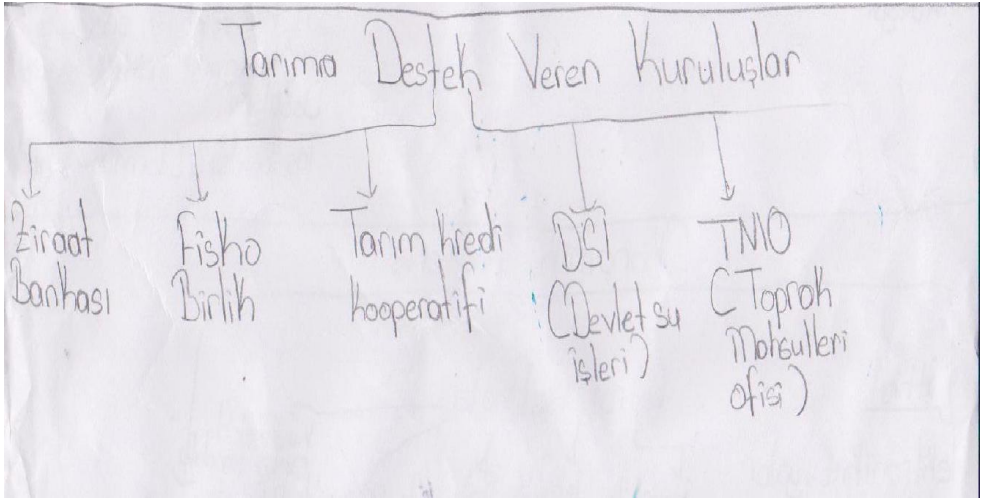 Tarıma Destek Veren Kuruluşlar
Ziraat
Bankası
Fisko
Birlik
Tarım kredi
kooperatifi
DSİ
(Devlet su
işleri)
TMO
(Toprak
Mahsulleri
ofisi)